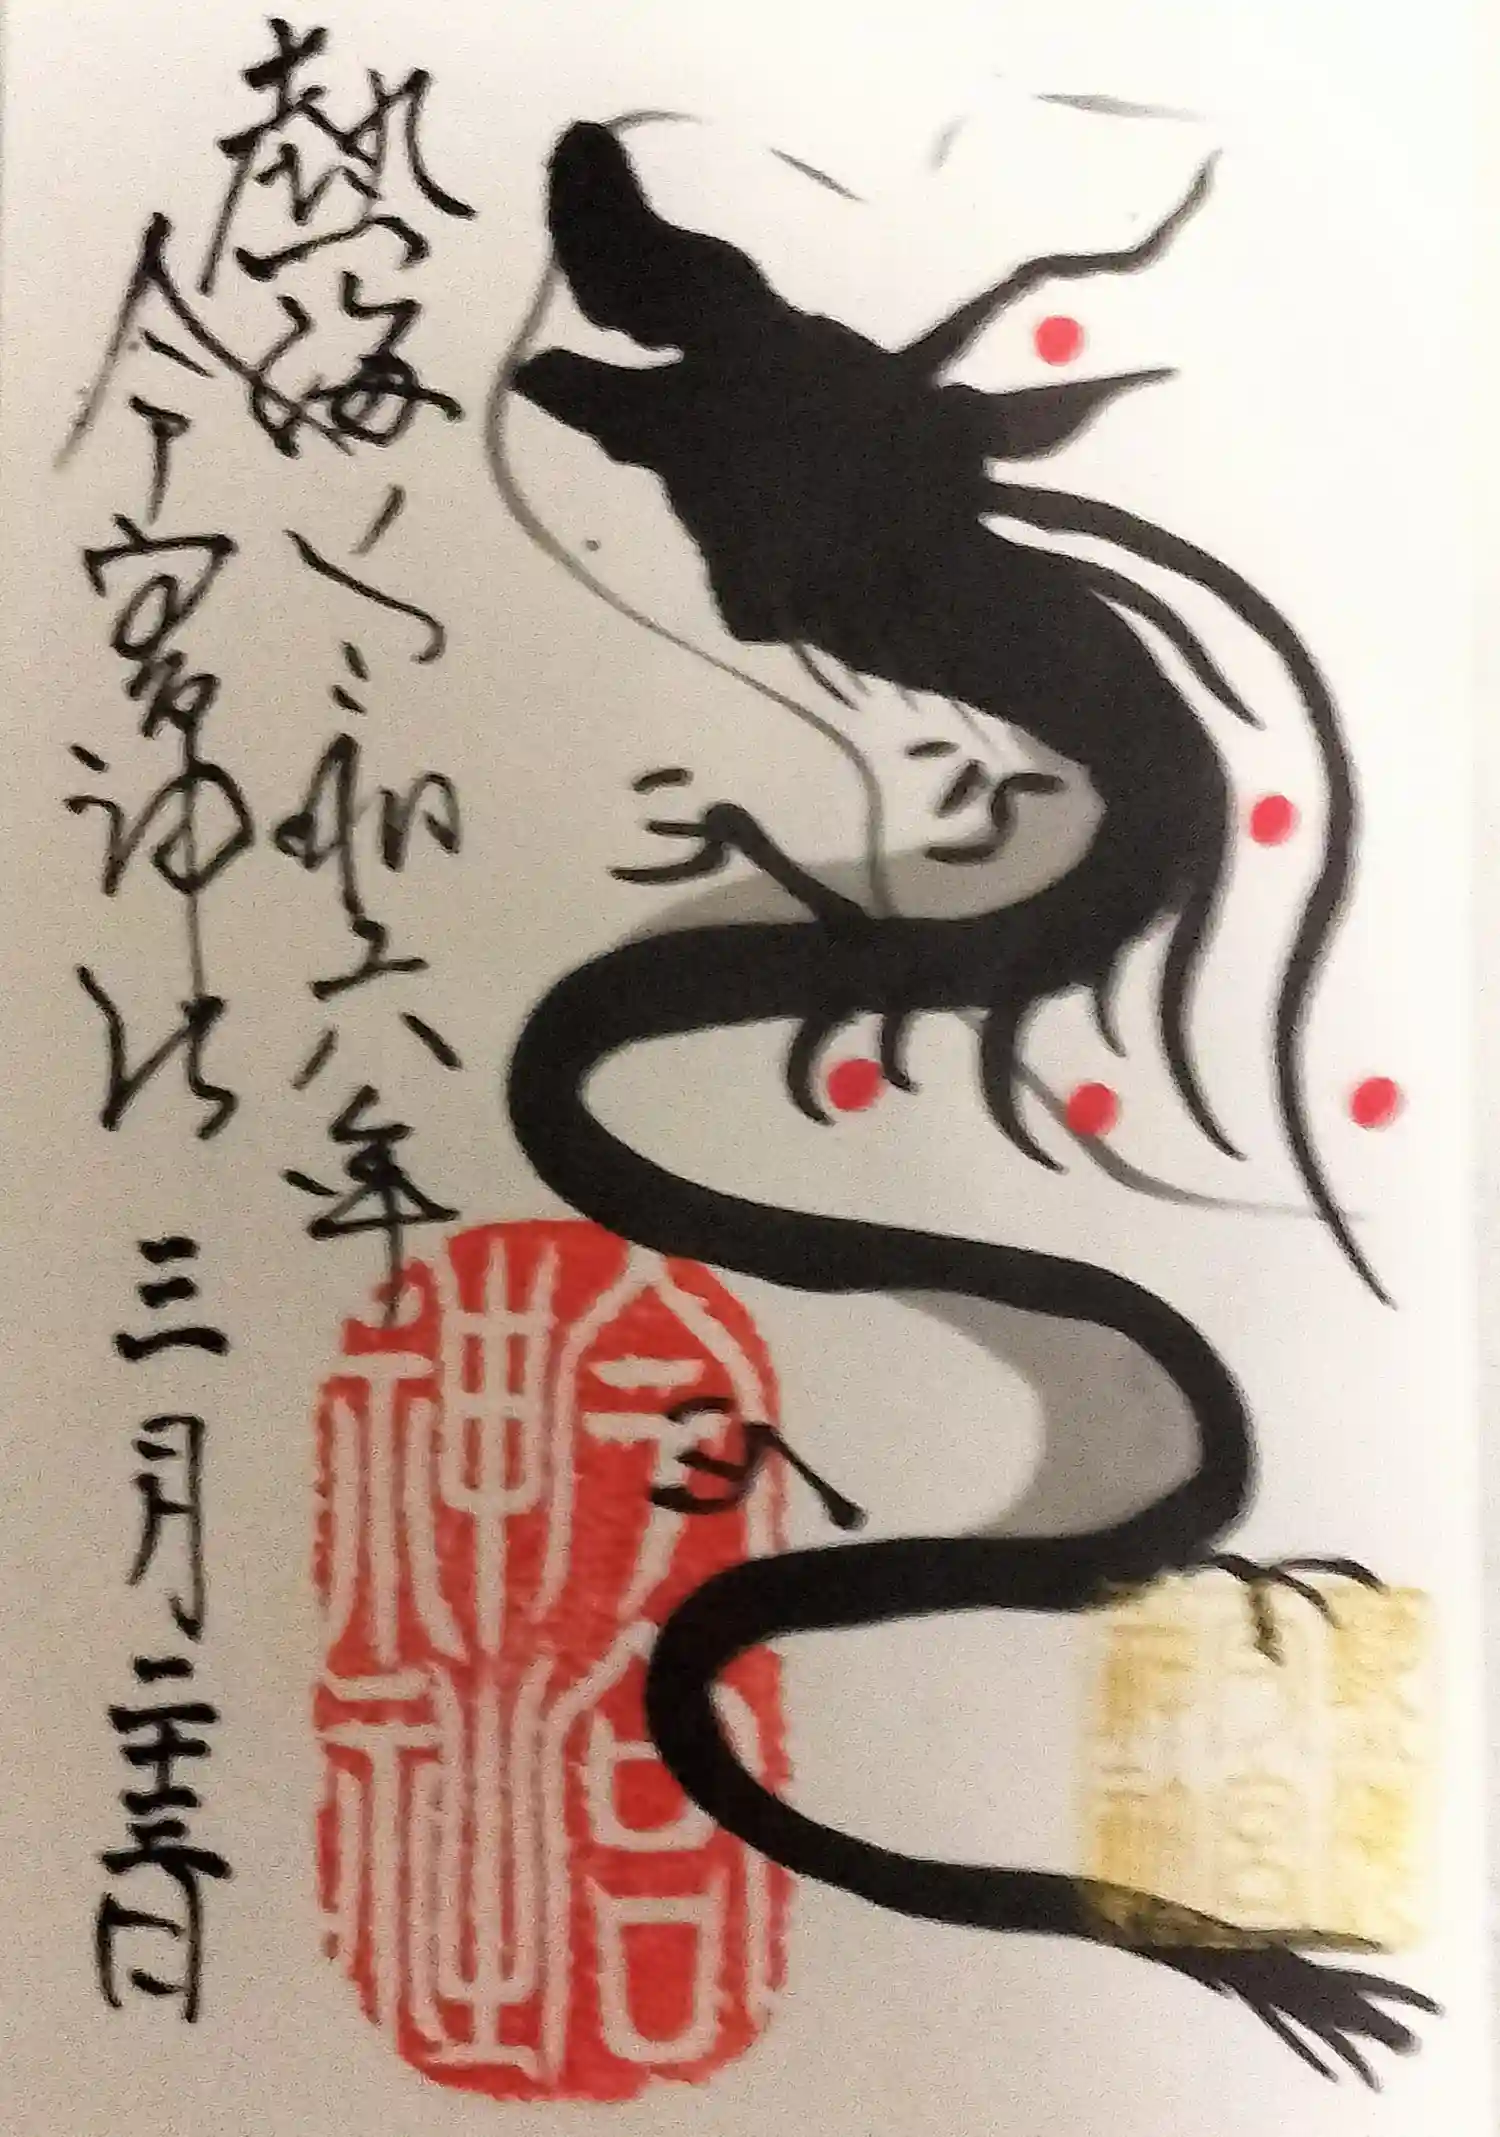 熱海 令和六年
今宮神社 三月二十日
今宮
神社